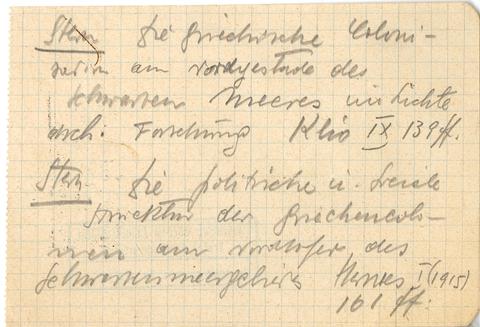 Stern Die Griechische Coloni-
sation am Nordgestade des
Schwarzen Meeres im Lichte
arch: Forschung Klio IX 139 ff.
Stern. Die politische u. soziale
Struktur der Griechencolo-
nien am Nordufer des
Schwarzmeergebietes Hermes I (1915)
161 ff.